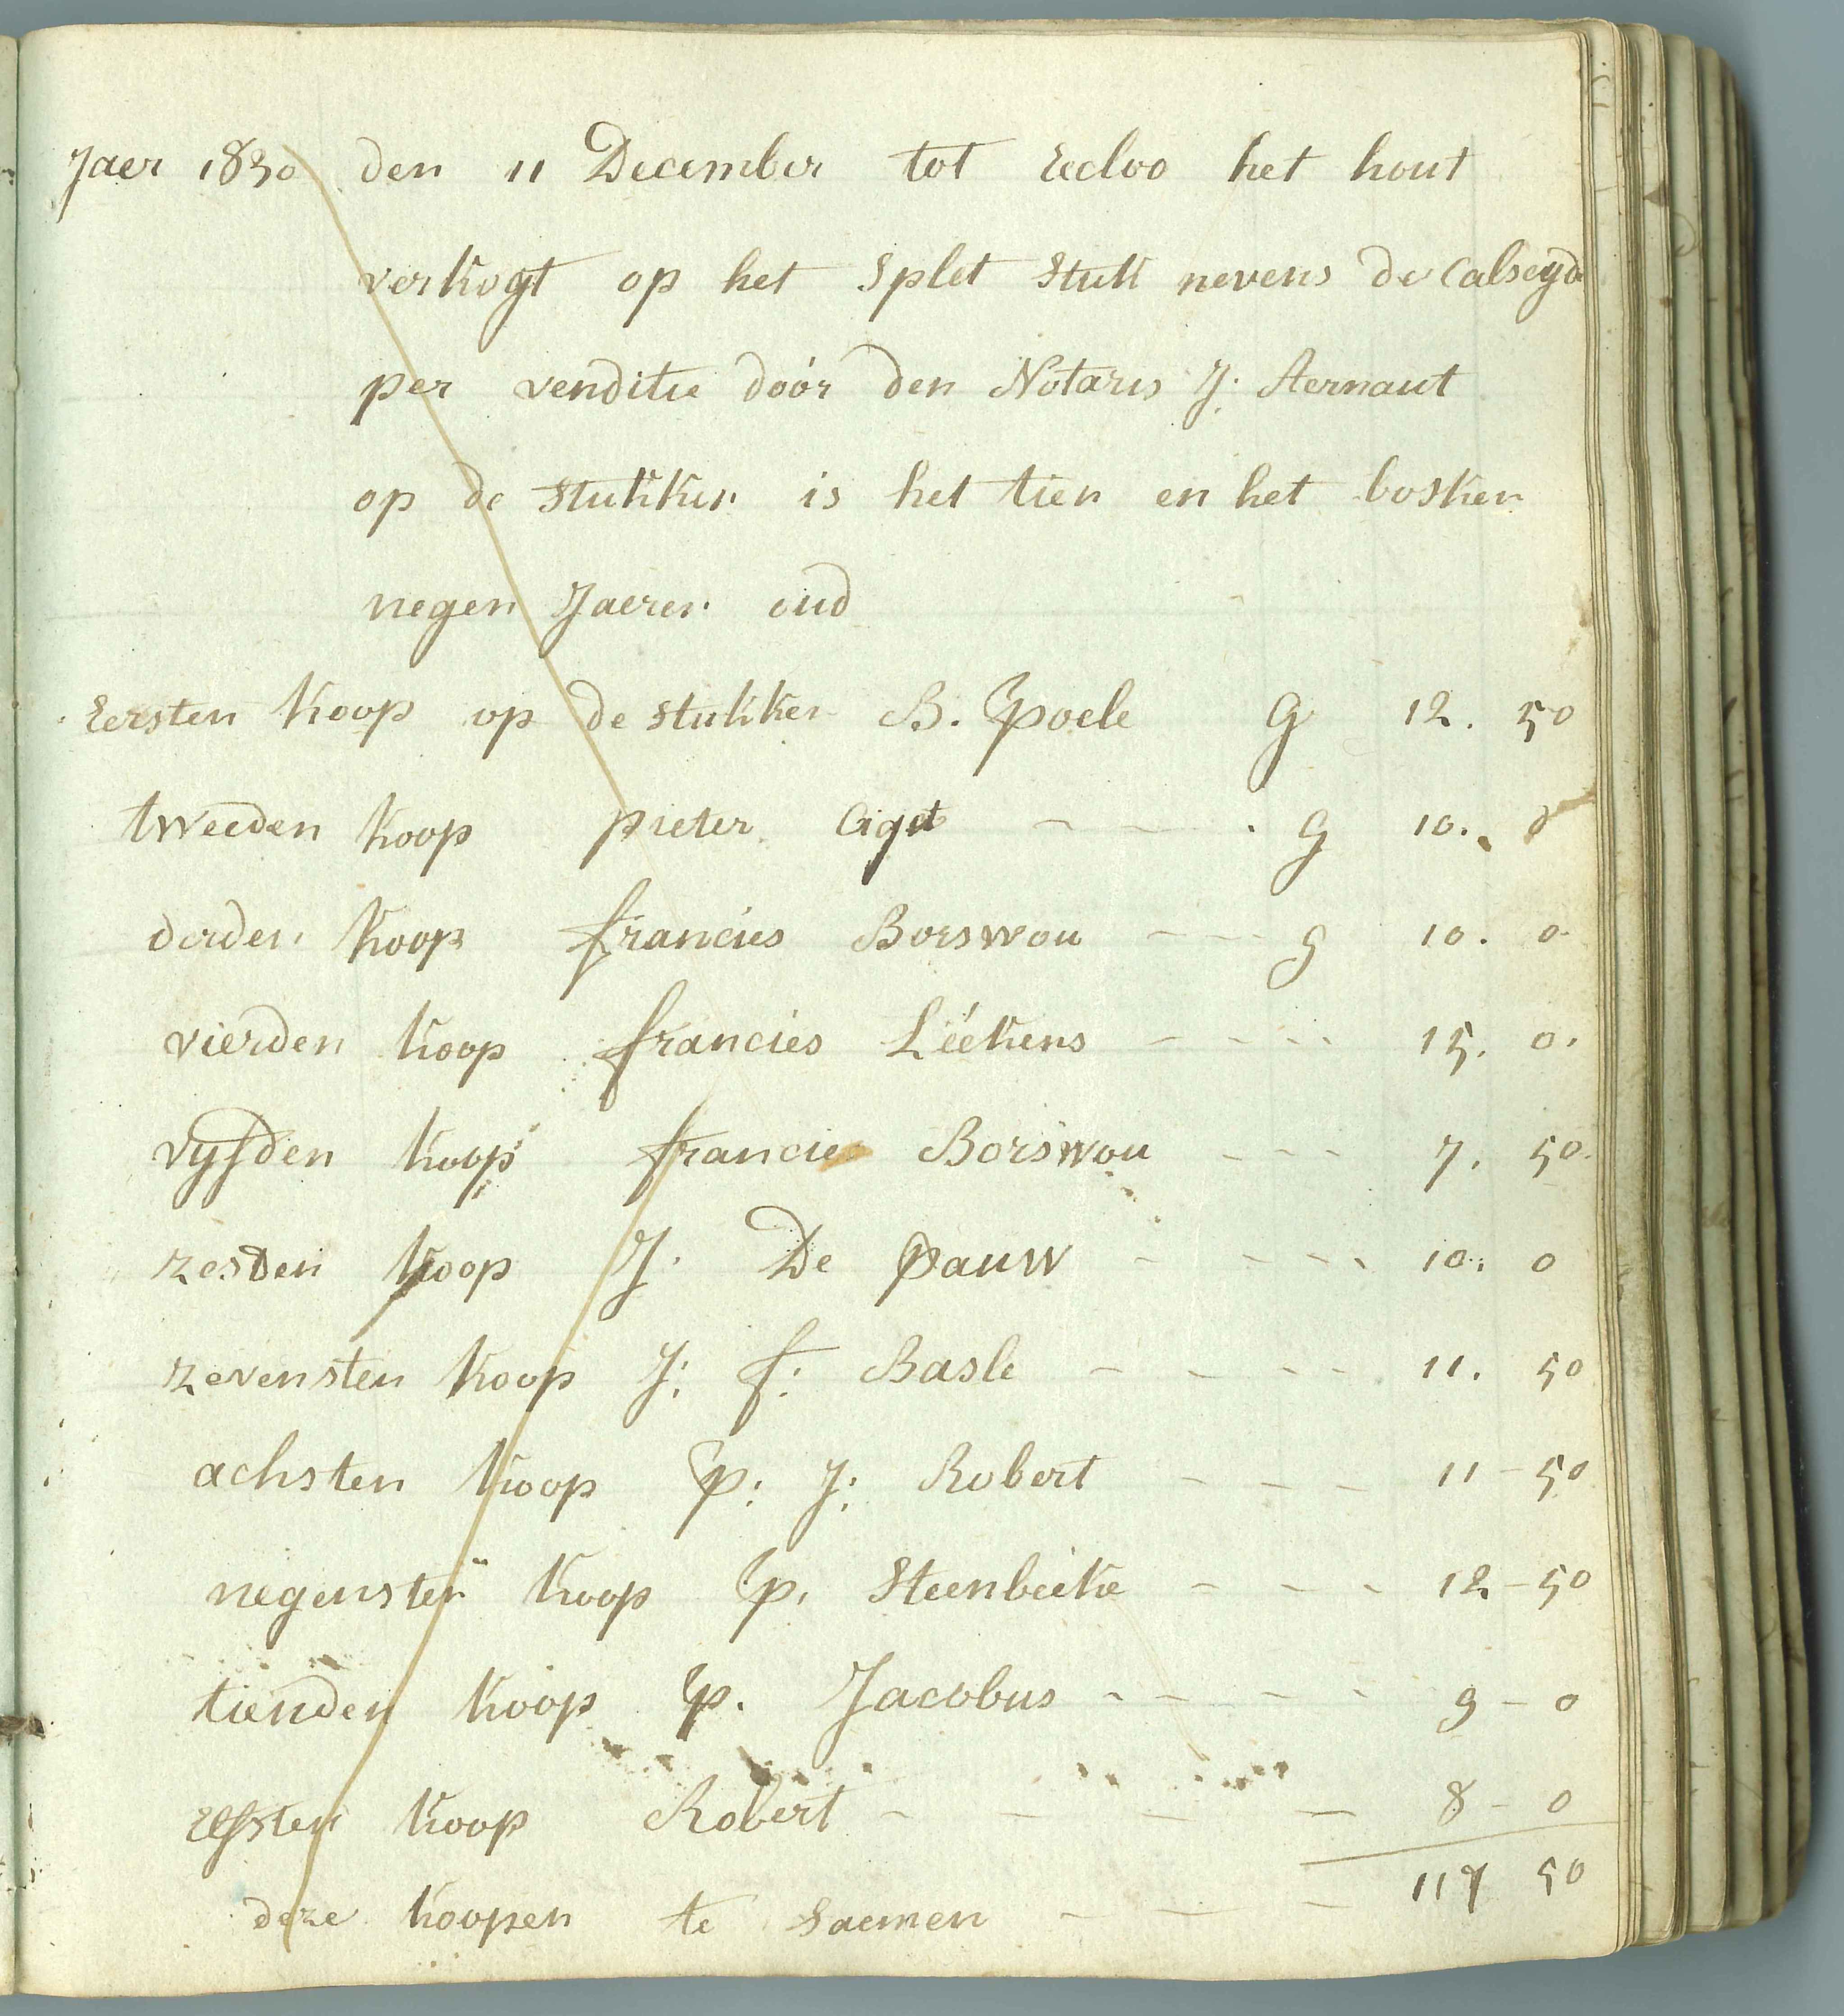 Jaer 1830 den 11 December tot Eecloo het hout
verkogt op het Splet Stuk nevens de Calseyde
per venditie door den Notaris J: Aernaut
op de stukken is het tien en het bosken
negen Jaeren oud
Eersten koop op de stukken B. Poele G 12. 50
tweeden koop pieter - - . G 10. 0
derden koop francies Borswou - - - G 10. 0
vierden koop francies Léékens - - - - 15. 0.
vyfden koop francies Borswou - - - 7. 50.
zesden koop J. De pauw - - - - 10. 0
zevensten koop J: f: Basle - - - - 11. 50
achsten koop P: J: Robert - - - 11 - 50
negensten koop P. Steenbeeke - - - 12 - 50
tienden koop P. Jacobus - - - - 9 - 0
Elfsten koop Robert - - - - 8 - 0
deze koopen te saemen - - - 117 50